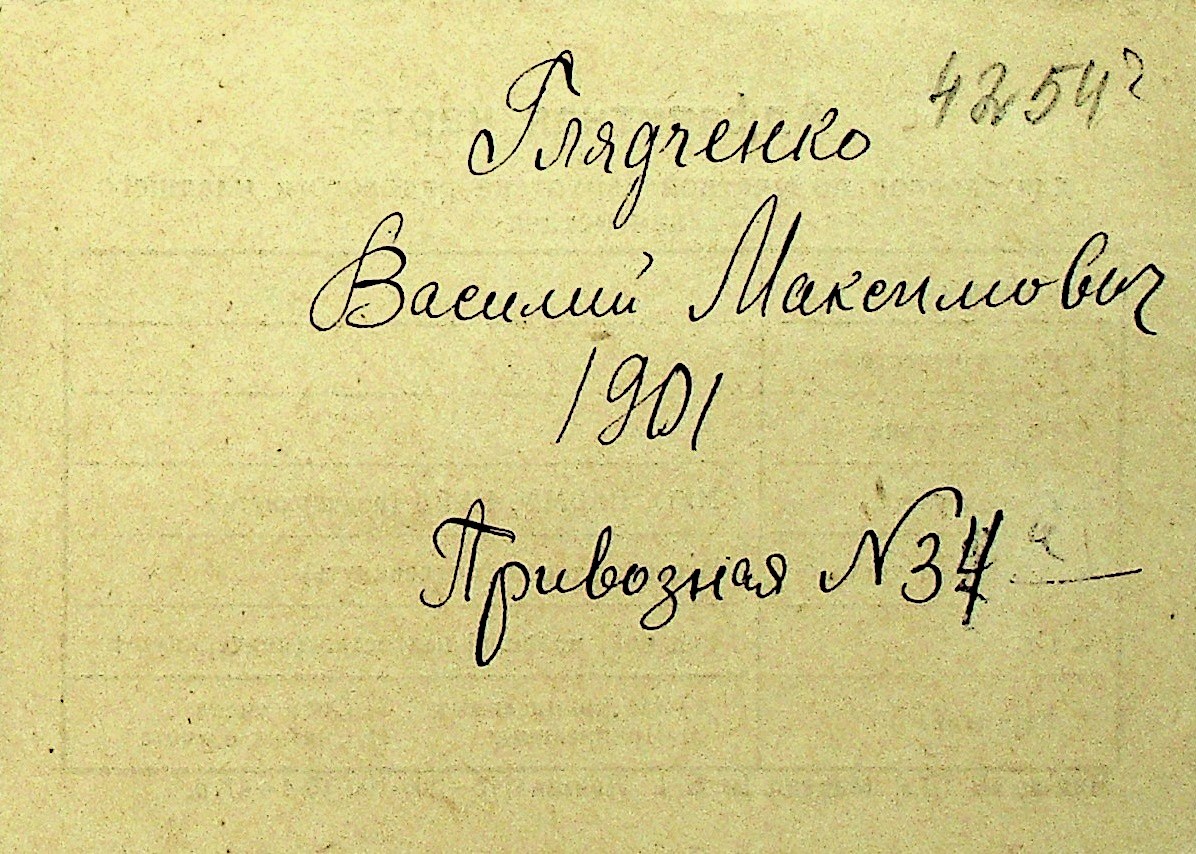 4254
Глядченко
Василий Максимович
1901
Привозная № 34